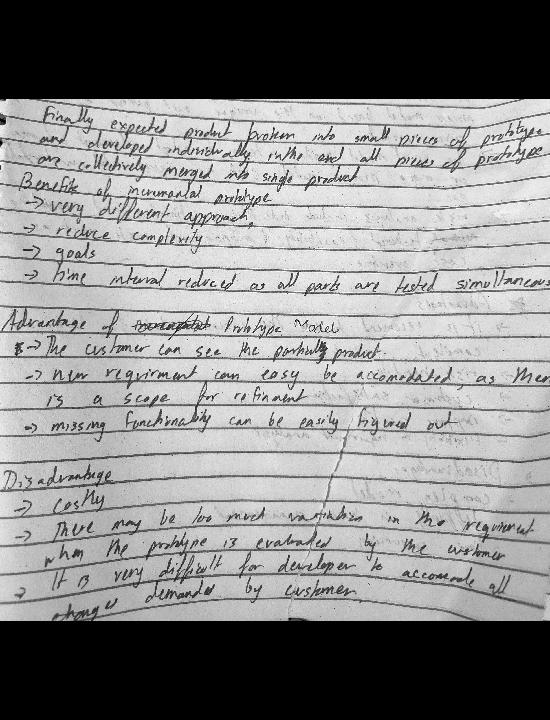 Finally expected product broken into small pieces of prototype
and developed individually inthe end all pieces of prototype
are collectively merged into single product
Benefits of incrumantal prototype
→ very different approach,
→ reduce complexity
→ goals
→ time interval reduced as all parts are tested simultaneous
Advantage of Prototype Model
→ The customer can see the partially product.
→ new requirment can easy be accomodated, as ther
is a scope for refinment
→ missing functionality can be easily figured out
Disadvantage
→ costly
→ There may be too much variation in the requirement
when the prototype is evaluated by the customer
→ It is very difficult for developer to accomode all
changes demanded by customer.